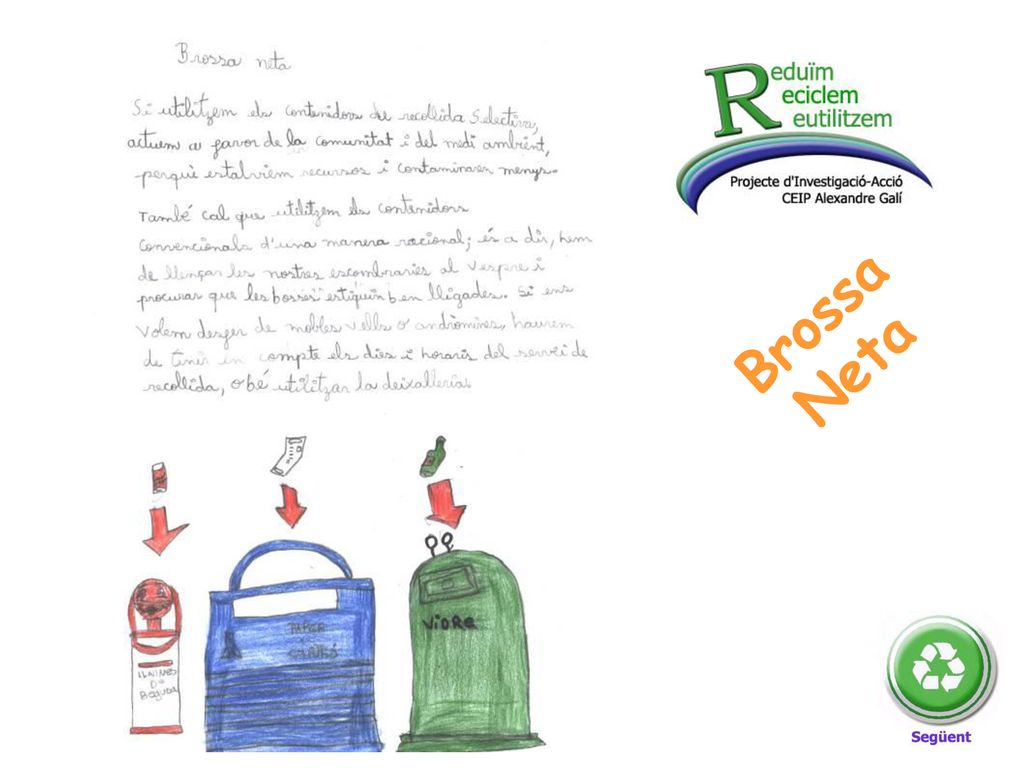 Brossa neta
Si utilitzem els contenidors de recollida Selectiva,
actuem a favor de la comunitat i del medi ambient,
perquè estalviem recursos i contaminem menys.
També cal que utilitzem els contenidors
convencionals d'una manera racional; és a dir, hem
de llençar les nostres escombraries al vespre i
procurar que les bosses estiguin ben lligades. Si ens
volem desfer de mobles vells o andròmines, haurem
de tenir en compte els dies i horaris del servei de
recollida, o bé utilitzar la deixalleria.
LLAUNES
De
Beguda
PAPER
CARTRÓ
ViDRe
Reduïm
Reciclem
Reutilitzem
Projecte d'Investigació-Acció
CEIP Alexandre Galí
Brossa
Neta
Següent